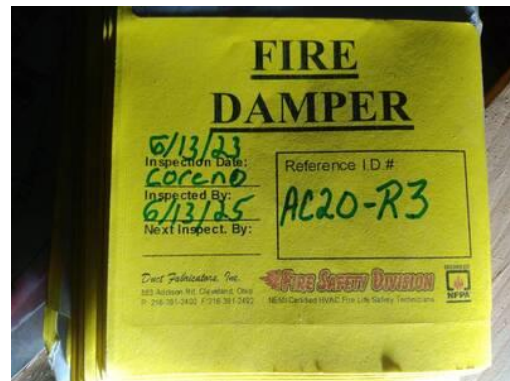 FIRE
DAMPER
6/13/23
Inspection Date:
Coreno
Inspected By:
6/13/25
Next Inspect. By:
Reference I.D.#
AC20-R3
Duct Fabricators, Inc.
883 Addison Rd. Cleveland, Ohio
P: 216-391-2400 F: 216-391-2492
FIRE SAFETY DIVISION
NEMI Certified HVAC Fire Life Safety Technicians
MEMBER
NFPA